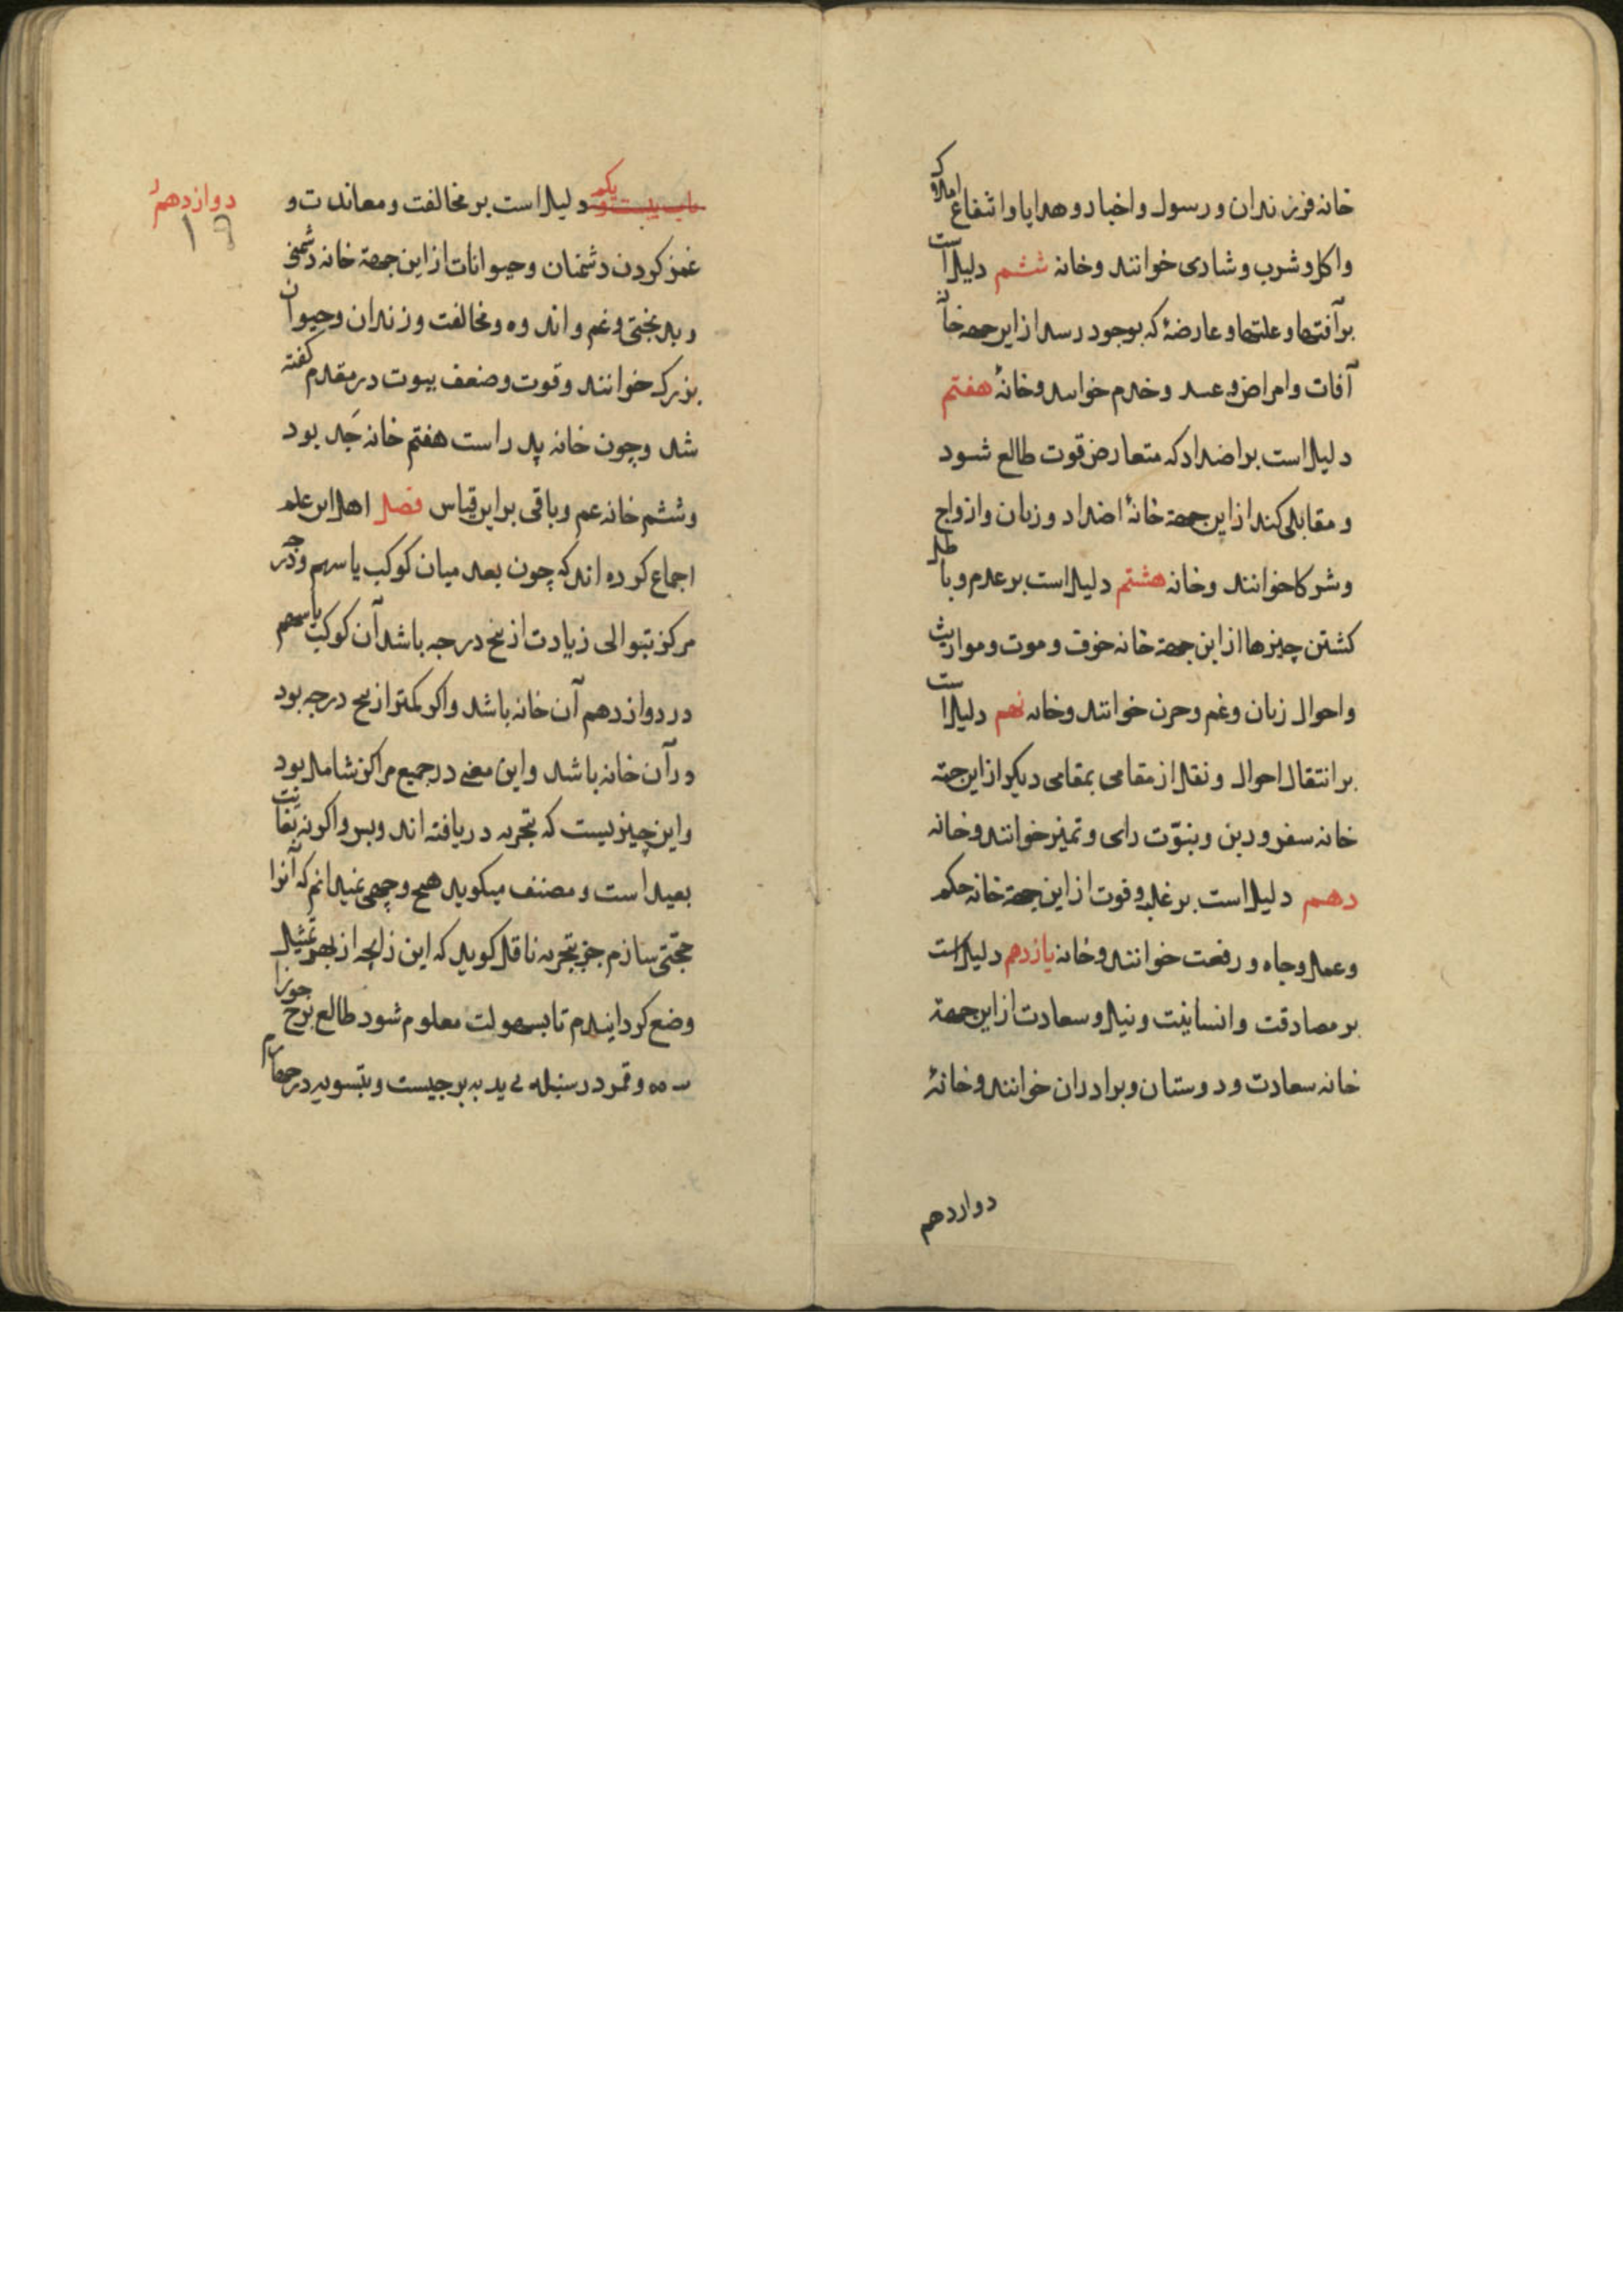 خانه فرزندان و رسول و اخبار و هدایا و اشفاع املاک
و اکل و شرب و شادی خوانند و خانه ششم دلیل است
بر آفتها و علتها و عارضهٔ که بوجود رسد از این جهة خانهٔ
آفات و امراض و عسد و خدم خوانند و خانهٔ هفتم
دلیل است بر اضداد که متعارض قوت طالع شود
و مقابلی کند از این جهة خانهٔ اضداد و زنان و ازواج
و شرکا خوانند و خانه هشتم دلیل است بر عدم و باطل
کشتن چیزها از این جهة خانه خوف و موت و مواریث
و احوال زنان و غم و حزن خوانند و خانه نهم دلیل است
بر انتقال احوال و نقل از مقامی بمقامی دیکر از این جهة
خانه سفر و دین و بنوّت رای و تمیز خوانند و خانه
دهم دلیل است بر غلبه و قوت از این جهة خانه حکم
و عمل و جاه و رفعت خوانند و خانه یازدهم دلیل است
بر مصادقت و انسانیت و نیل و سعادت از این جهة
خانه سعادت و دوستان و برادران خوانند و خانهٔ
دوازدهم
دوازدهم
۱۹
باب بیست و یکم دلیل است بر مخالفت و معاندت و
غمز کردن دشمنان و حیوانات از این جهة خانه دشمنی
و بدبختی و غم و اندوه و مخالفت و زندان و حیوان
بزرک خوانند و قوت و ضعف بیوت در مقدم کفته
شد و چون خانه پدر است هفتم خانه جد بود
و ششم خانه عم و باقی بر این قیاس فصل اهل این علم
اجماع کرده اند که چون بعد میان کوکب یا سهم و جزر
مرکز بتوالی زیادت از نج درجه باشد آن کوکب یا سهم
در دوازدهم آن خانه باشد و اکر کمتر از نج درجه بود
در آن خانه باشد و این معنی در جمیع مراکز شامل بود
و این چیزیست که بتجربه دریافته اند و بس و اکر نه بغایت
بعید است و مصنف میکوید هیچ وجهی نمیدانم که آنرا
حجتی سازم جز بتجربه ناقل کوید که این زایجه از بهر تمثیل
وضع کردانیدم تا بسهولت معلوم شود طالع برج جوزا
و قمر در سنبله بدیه برجیست و بتسویه در چهارم